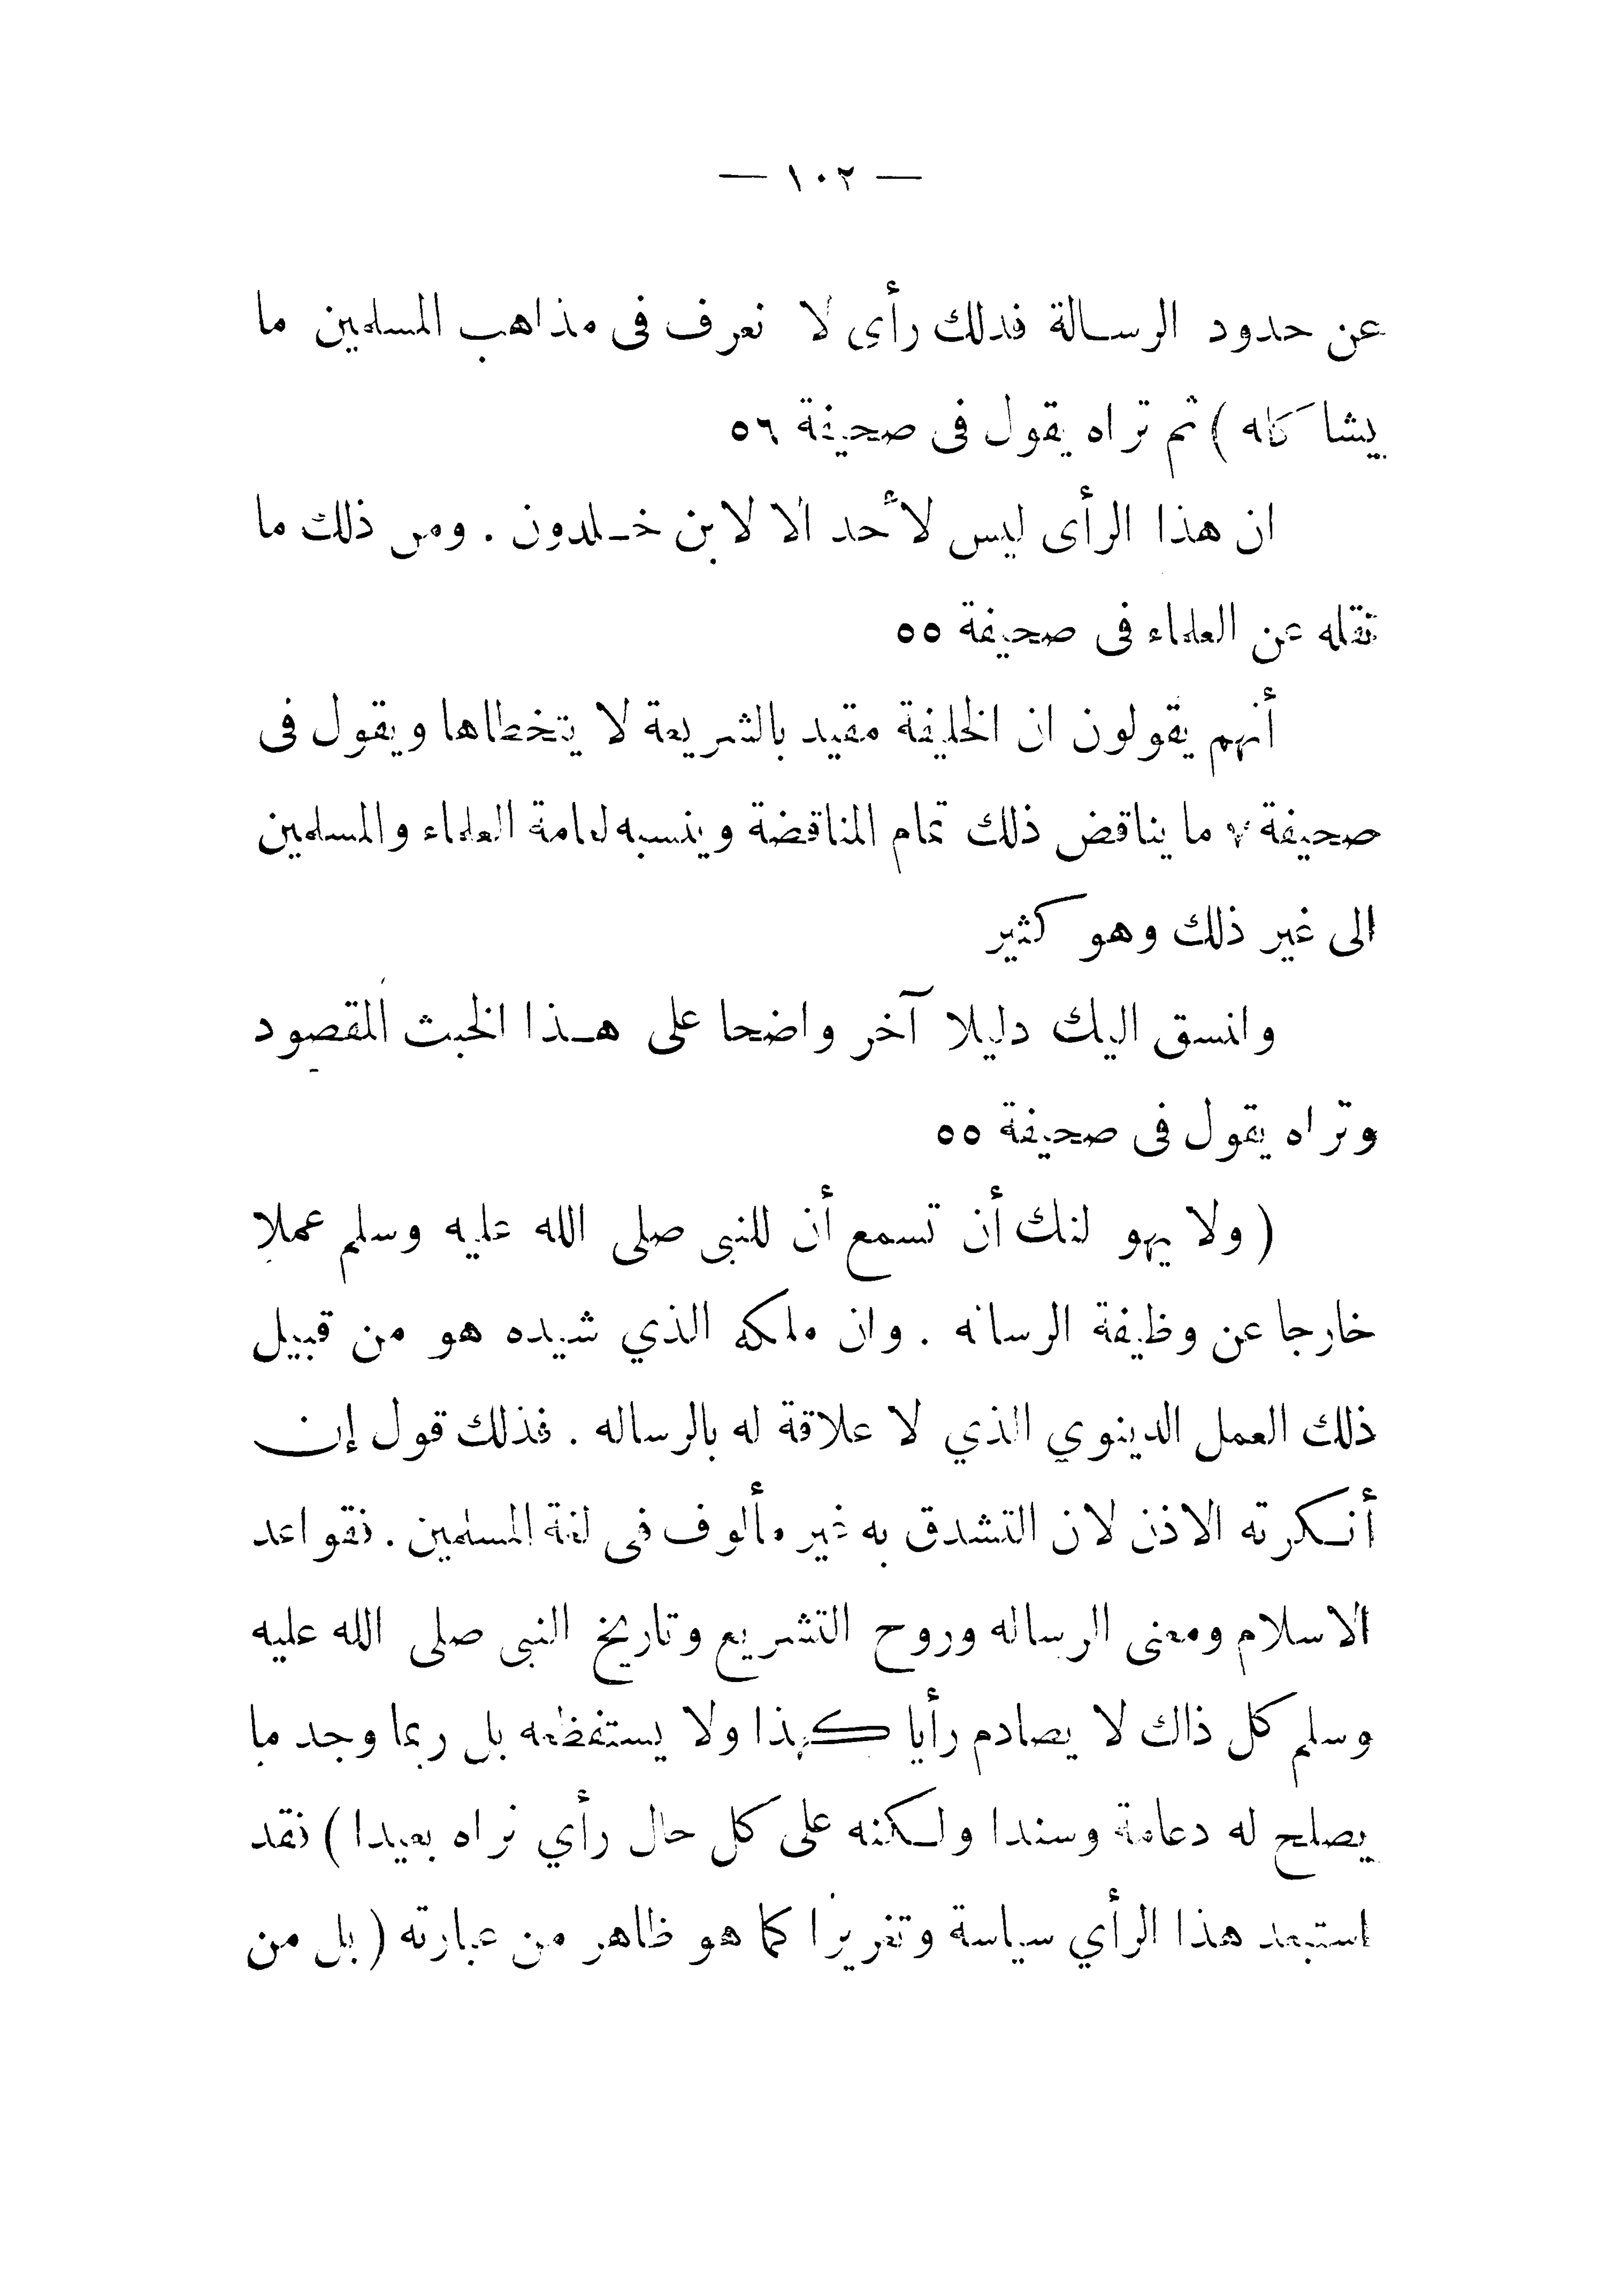 — ١٠٢ —
عن حدود الرسالة فذلك رأى لا نعرف فى مذاهب المسلمين ما
يشاكله ) ثم تراه يقول فى صحيفة ٥٦
ان هذا الرأى ليس لأحد الا لابن خلدون . ومن ذلك ما
نقله عن العلماء فى صحيفة ٥٥
أنهم يقولون ان الخليفة مقيد بالشريعة لا يتخطاها ويقول فى
صحيفة ٧ ما يناقض ذلك تمام المناقضة وينسبه لعامة العلماء والمسلمين
الى غير ذلك وهو كثير
وانسق اليك دليلا آخر واضحا على هذا الخبث المقصود
وتراه يقول فى صحيفة ٥٥
( ولا يهو لنك أن تسمع أن للنبى صلى الله عليه وسلم عملا
خارجا عن وظيفة الرساله . وان ملكه الذي شيده هو من قبيل
ذلك العمل الدينوي الذي لا علاقة له بالرساله . فذلك قول إن
أنكرته الاذن لان التشدق به غير مألوف فى لغة المسلمين . فقواعد
الاسلام ومعنى الرساله وروح التشريع وتاريخ النبى صلى الله عليه
وسلم كل ذاك لا يصادم رأيا كهذا ولا يستفظعه بل ربما وجد ما
يصلح له دعامة وسندا ولكنه على كل حال رأي نراه بعيدا ) فقد
استبعد هذا الرأي سياسة وتغريرا كما هو ظاهر من عبارته ( بل من